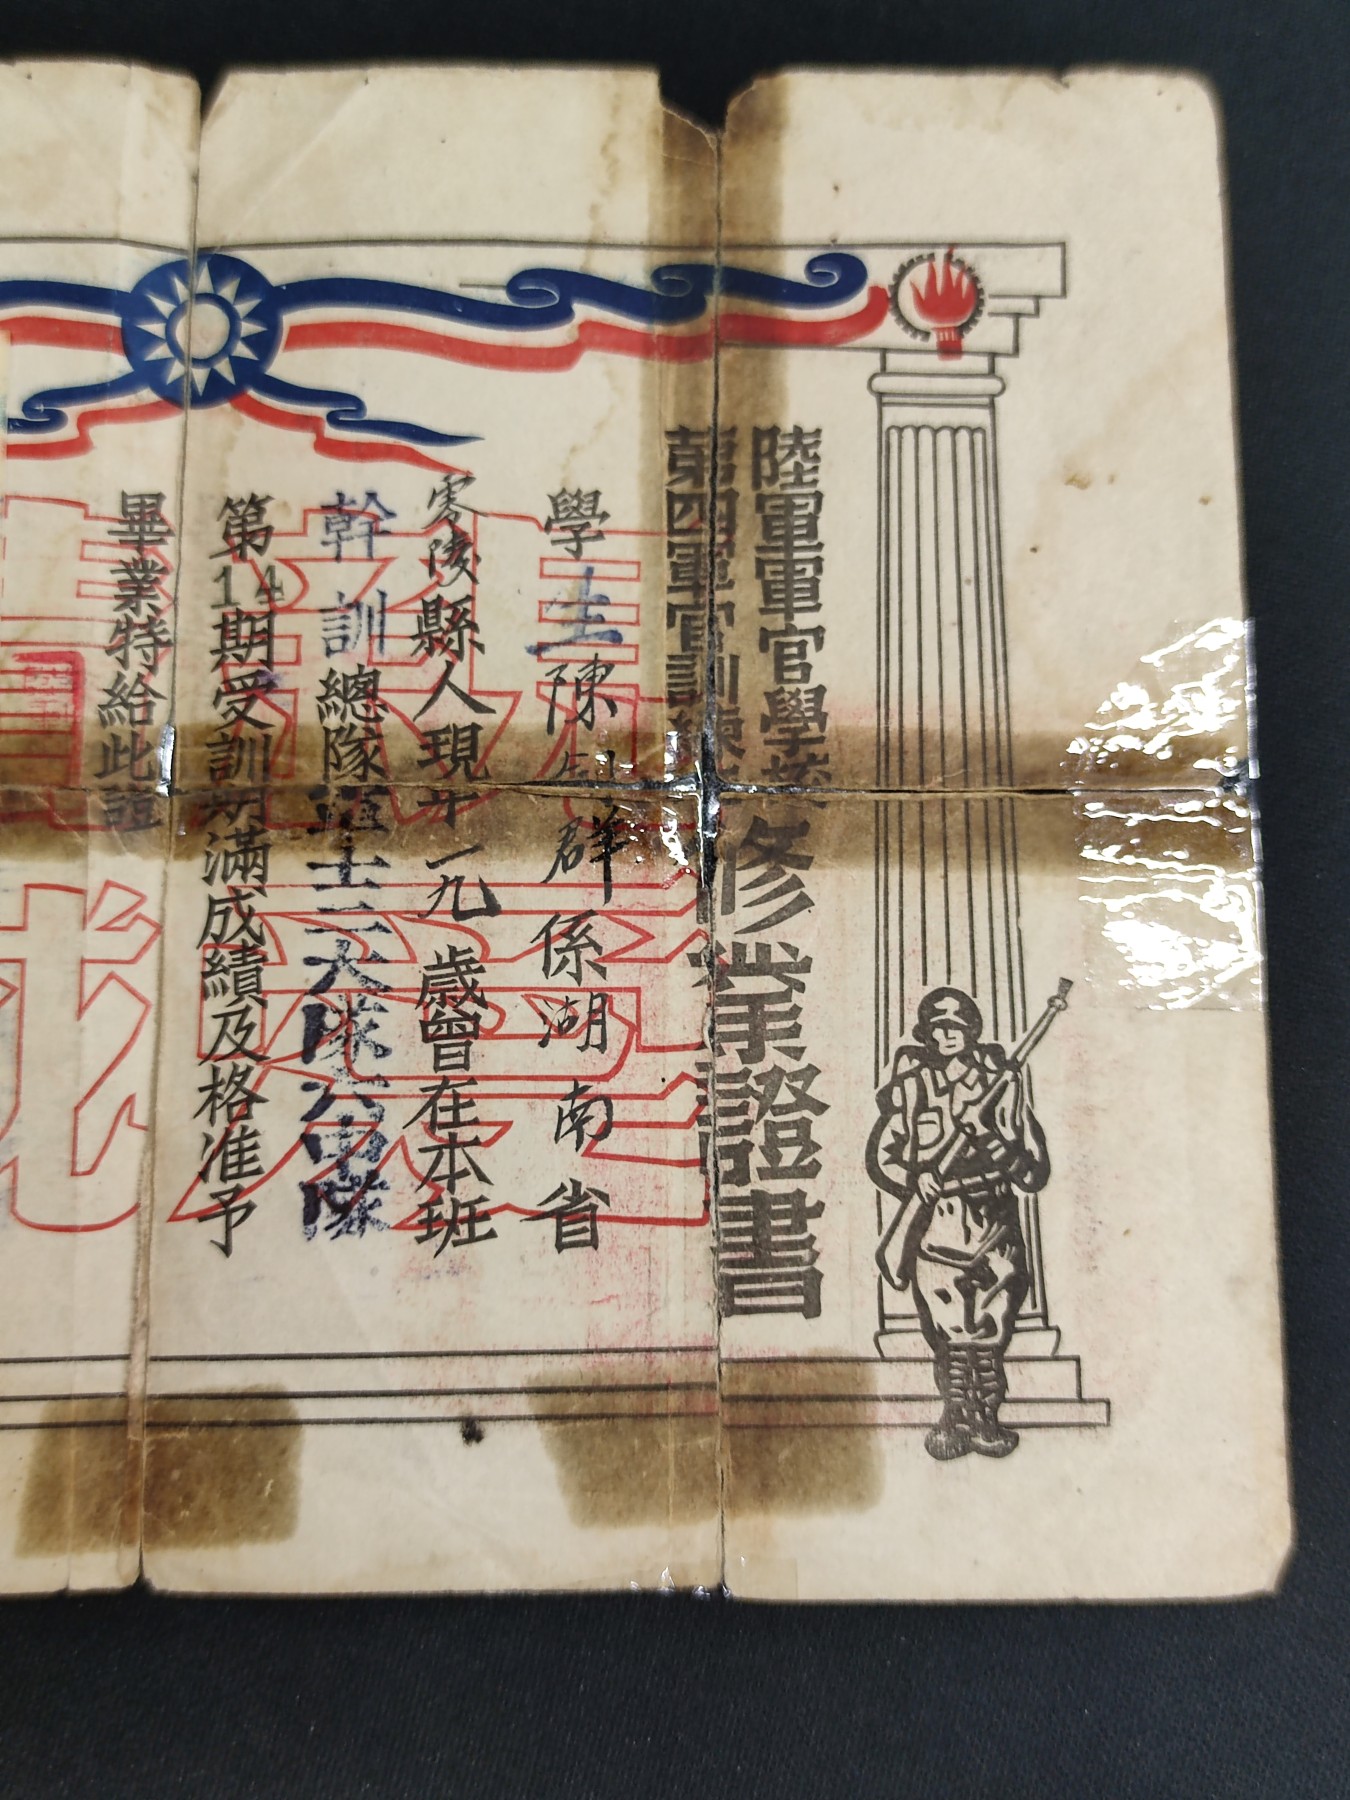 陸軍軍官學校
第四軍官訓練班
修業證書
學生陳釗群係湖南省
零陵縣人現年一九歲曾在本班
幹訓總隊軍士二大隊六中隊
第14期受訓期滿成績及格准予
畢業特給此證